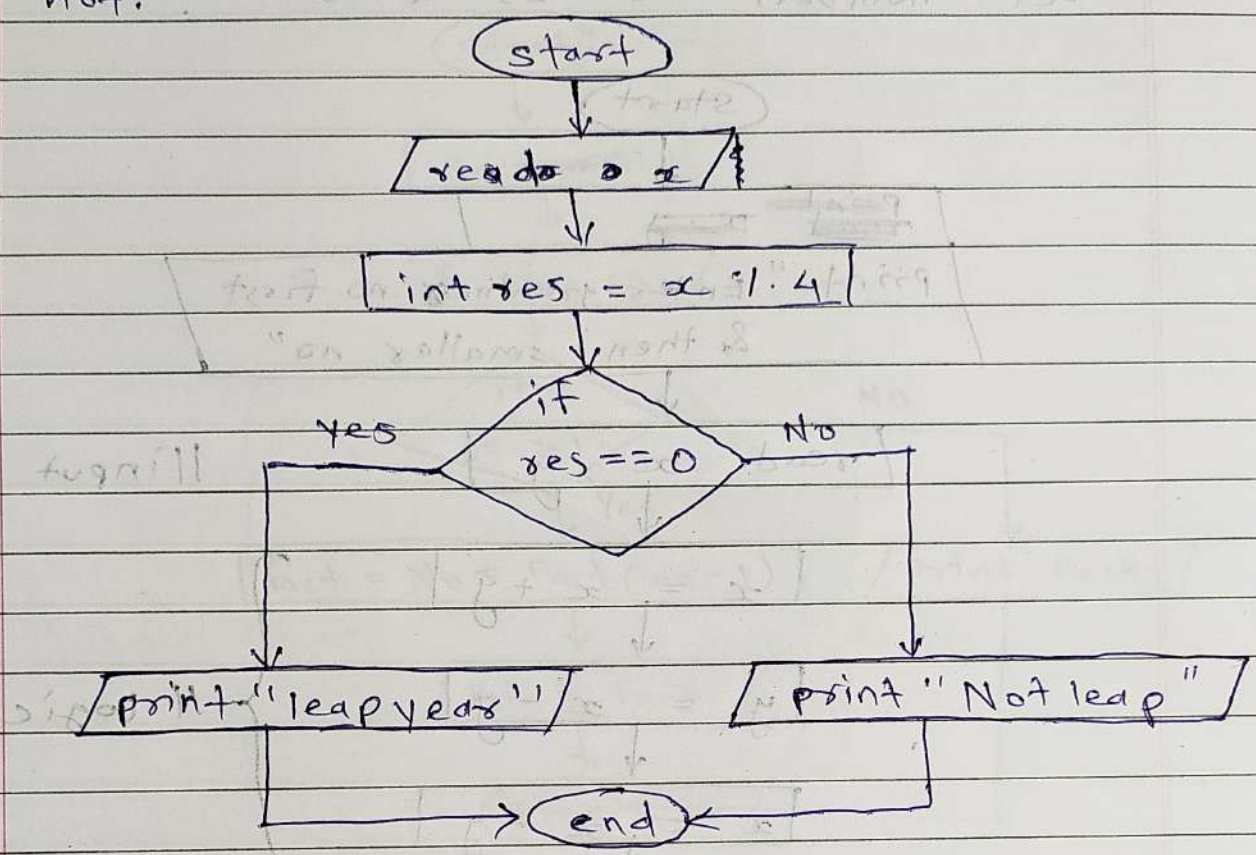 not.
start
read x
int res = x % 4
if
yes
No
res == 0
print "leap year"
print "Not leap"
end